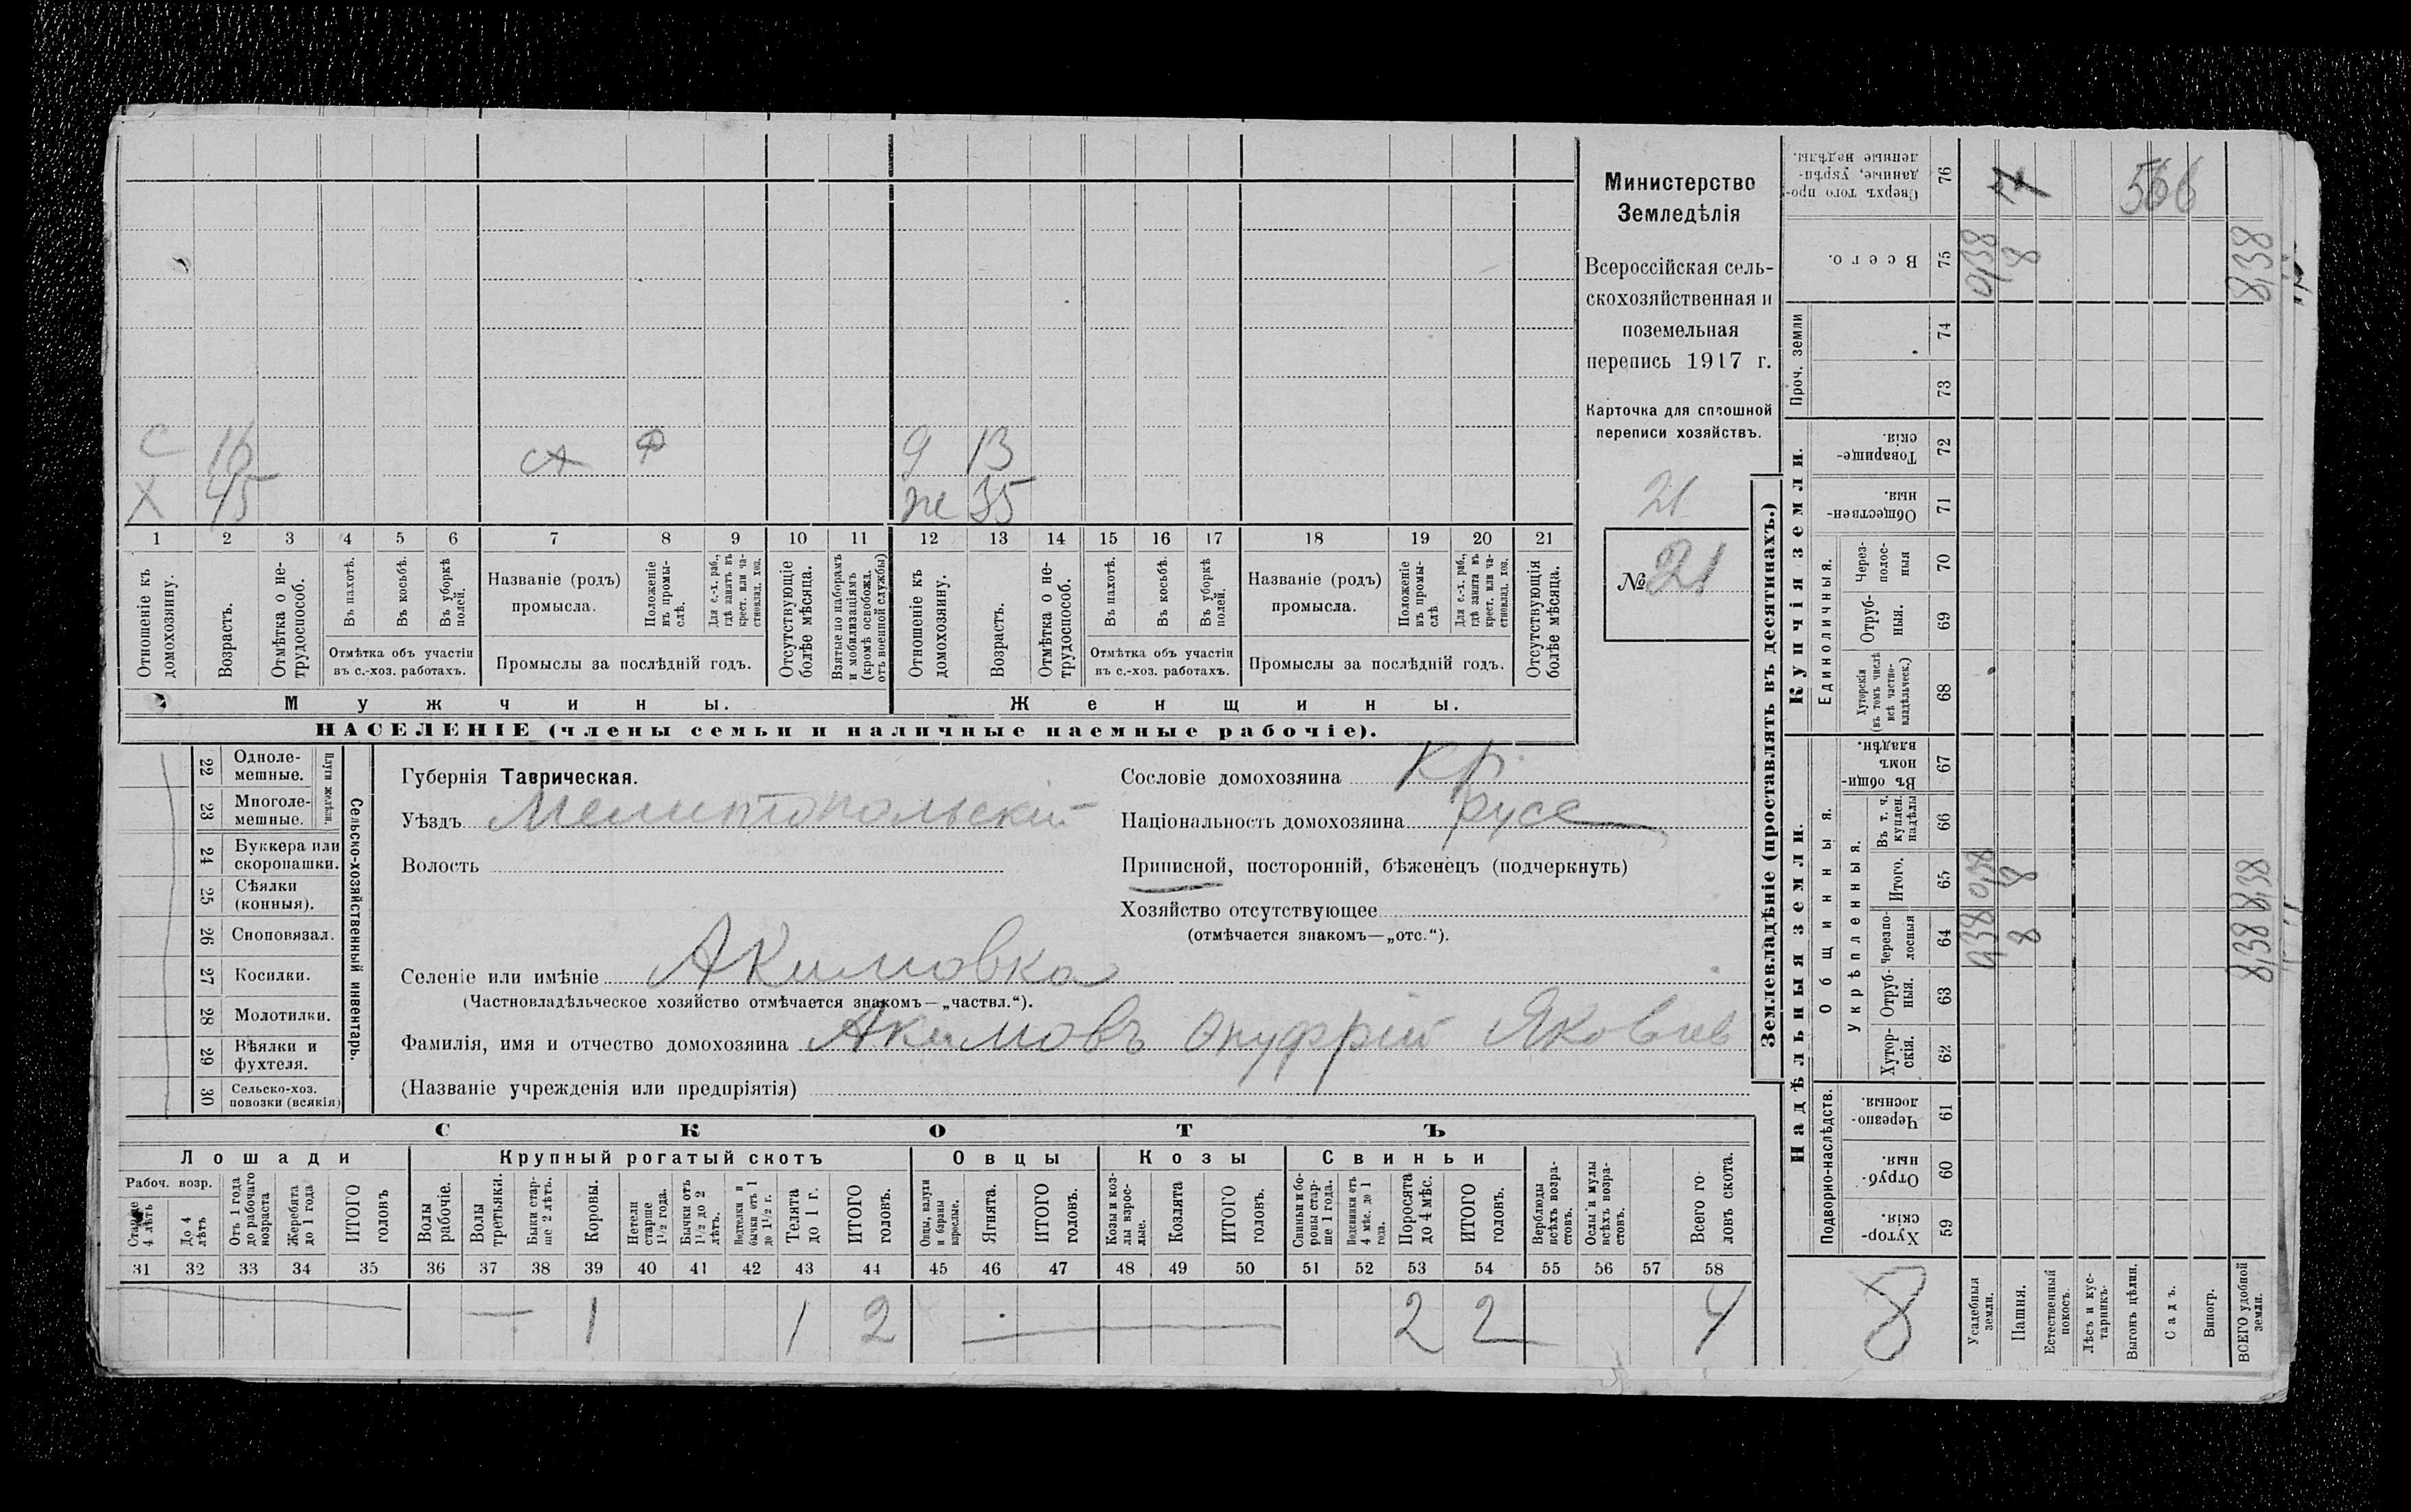 С 16 А Ф д 13
Х 45 же 35
1 2 3 4 5 6 7 8 9 10 11 12 13 14 15 16 17 18 19 20 21
Отношеніе къ домохозяину.
Возрастъ.
Отмѣтка о не-
трудоспособ.
Въ пахотѣ.
Въ косьбѣ.
Въ уборкѣ полей.
Отмѣтка объ участіи
въ с.-хоз. работахъ.
Названіе (родъ)
промысла.
Положеніе
въ промы-
слѣ.
Для с.-х. раб.,
гдѣ занятъ въ
крест. или ча-
стновлад. хоз.
Промыслы за послѣдній годъ.
Отсутствующіе
болѣе мѣсяца.
Взятые по наборамъ
и мобилизаціямъ
(кромѣ освобожд.
отъ военной службы)
Отношеніе къ
домохозяину.
Возрастъ.
Отмѣтка о не-
трудоспособ.
Въ пахотѣ.
Въ косьбѣ.
Въ уборкѣ
полей.
Отмѣтка объ участіи
въ с.-хоз. работахъ.
Названіе (родъ)
промысла.
Положеніе
въ промы-
слѣ.
Для с.-х. раб.,
гдѣ занята въ
крест. или ча-
стновлад. хоз.
Промыслы за послѣдній годъ.
Отсутствующія
болѣе мѣсяца.
Мужчины.
Женщины.
НАСЕЛЕНІЕ (члены семьи и наличные наемные рабочіе).
Министерство
Земледѣлія
Всероссійская сель-
скохозяйственная и
поземельная
перепись 1917 г.
Карточка для сплошной
переписи хозяйствъ.
21
№ 21
22 Одноле-
мешные.
23 Многоле-
мешные.
Плуги желѣзн.
24 Буккера или
скоропашки.
25 Сѣялки
(конныя).
26 Сноповязал.
27 Косилки.
28 Молотилки.
29 Вѣялки и
фухтеля.
30 Сельско-хоз.
повозки (всякія)
Сельско-хозяйственный инвентарь.
Губернія Таврическая.
Уѣздъ Мелитопольскій
Волость
Селеніе или имѣніе Акимовка
(Частновладѣльческое хозяйство отмѣчается знакомъ—„частвл.“).
Фамилія, имя и отчество домохозяина Акимовъ Онуфрій Яковлев
(Названіе учрежденія или предпріятія)
Сословіе домохозяина кр.
Національность домохозяина русс
Приписной, посторонній, бѣженецъ (подчеркнуть)
Хозяйство отсутствующее
(отмѣчается знакомъ—„отс.“).
СКОТЪ
Лошади
Рабоч. возр.
Старше
4 лѣтъ
До 4
лѣтъ
Отъ 1 года
до рабочаго
возраста
Жеребята
до 1 года
ИТОГО
головъ
Крупный рогатый скотъ
Волы
рабочіе.
Волы
третьяки.
Быки стар-
ше 2 лѣтъ.
Коровы.
Нетели
старше
1½ года.
Бычки отъ
1½ до 2
лѣтъ.
Подтелки и
бычки отъ 1
до 1½ г.
Телята
до 1 г.
ИТОГО
головъ.
Овцы
Овцы, валухи
и бараны
взрослые.
Ягнята.
ИТОГО
головъ.
Козы
Козы и коз-
лы взрос-
лые.
Козлята
ИТОГО
головъ.
Свиньи
Свиньи и бо-
ровы стар-
ше 1 года.
Подсвинки отъ
4 мѣс. до 1
года.
Поросята
до 4 мѣс.
ИТОГО
головъ.
Верблюды
всѣхъ возра-
стовъ.
Ослы и мулы
всѣхъ возра-
стовъ.
Всего го-
ловъ скота.
31 32 33 34 35 36 37 38 39 40 41 42 43 44 45 46 47 48 49 50 51 52 53 54 55 56 57 58
— — 1 1 2 — 2 2 4
Землевладѣніе (проставлять въ десятинахъ.)
Надѣльныя земли.
Купчія земли.
Проч. земли
Подворно-наслѣдств.
Общинныя.
Укрѣпленныя.
Единоличныя.
Сверхъ того про-
данные, укрѣп-
ленные надѣлы.
76
566
Всего.
75
0,38
8
8,38
74
73
Товарище-
скія.
72
Обществен-
ныя.
71
Через-
полос-
ныя
70
Отруб-
ныя.
69
Хуторскія
(въ томъ числѣ
всѣ частно-
владѣльческ.)
68
Въ общин-
номъ
владѣн.
67
Въ т. ч.
куплен.
надѣлы
66
Итого.
65
0,38
8
8,38
Черезпо-
лосныя
64
0,38
8
8,38
Отруб-
ныя.
63
Хутор-
скія.
62
Черезпо-
лосныя.
61
Отруб-
ныя.
60
Хутор-
скія.
59
8
Усадебныя
земли.
Пашня.
Естественный
покосъ.
Лѣсъ и кус-
тарникъ.
Выгонъ цѣлин.
Садъ.
Виногр.
ВСЕГО удобной
земли.